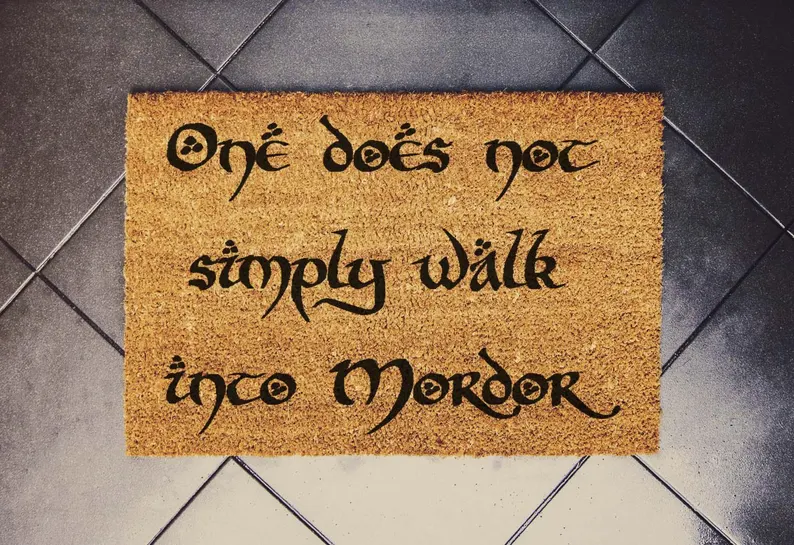 One does not
simply walk
into Mordor